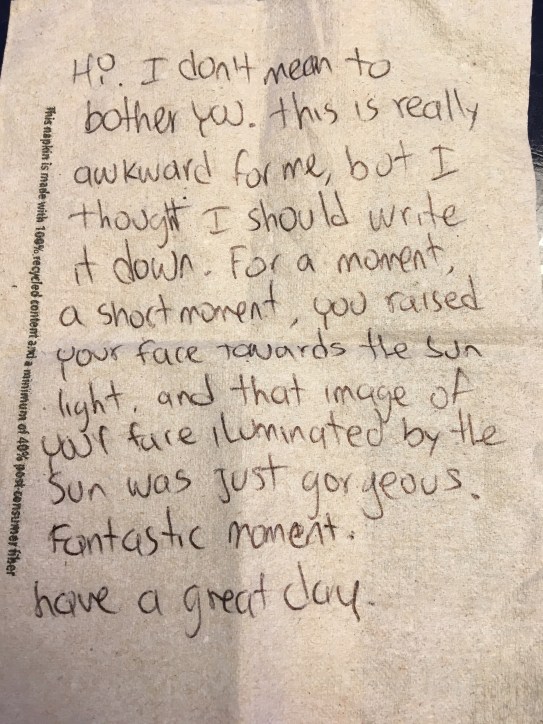 Hi. I don't mean to
bother you. this is really
awkward for me, but I
thought I should write
it down. For a moment,
a short moment, you raised
your face towards the sun
light, and that image of
your face iluminated by the
sun was just gorgeous.
Fantastic moment.
have a great day.
This napkin is made with 100% recycled content and a minimum of 40% post-consumer fiber